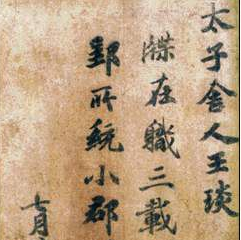 太子舍人王琰
牒在職三載
郢所統小郡
七月